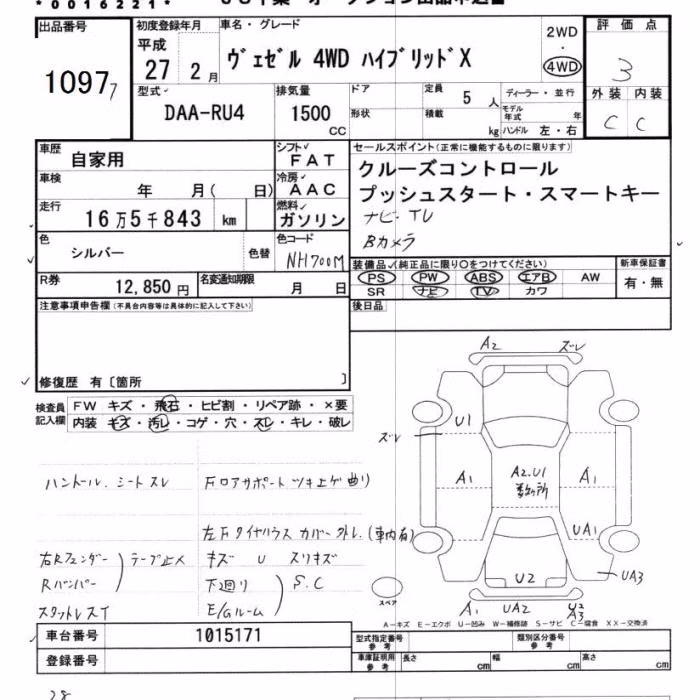 *0016221*
出品番号
10977
初度登録年月
平成
27 2月
車名・グレード
ヴェゼル 4WD ハイブリッドX
2WD
・
4WD
評価点
3
外装 内装
C C
型式
DAA-RU4
排気量
1500
CC
ドア
形状
定員
5 人
積載
kg
ディーラー・並行
モデル年式 年
ハンドル 左・右
車歴
自家用
車検
年 月( 日)
走行
16万5千843 km
色
シルバー
色替
R券
12,850円
名変通知期限
月 日
シフト
FAT
冷房
AAC
燃料
ガソリン
色コード
NH700M
セールスポイント(正常に機能するものに限ります)
クルーズコントロール
プッシュスタート・スマートキー
ナビ・TV
Bカメラ
装備品(純正品に限り○をつけてください)
PS PW ABS エアB AW
SR ナビ TV カワ
新車保証書
有・無
後日品
注意事項申告欄(不具合内容等は具体的に記入して下さい)
修復歴 有〔箇所 〕
検査員記入欄
FW キズ・飛石・ヒビ割・リペア跡・×要
内装 キズ・汚レ・コゲ・穴・スレ・キレ・破レ
ハンドル.シートスレ
Fロアサポートツキ上ゲ曲リ
左Fタイヤハウスカバー外レ.(車内有)
右Rフェンダー
Rバンパー
テープ止メ
キズ U スリキズ
下廻リ
E/Gルーム
S.C
A2
ズレ
U1
ズレ
A1
A2.U1
数ヶ所
A1
UA1
U2
UA3
スペア
A1
UA2
U2
A3
A-キズ E-エクボ U-凹み W-補修跡 S-サビ C-腐食 XX-交換済
車台番号
1015171
登録番号
型式指定番号
参考
類別区分番号
参考
車庫証明用
参考
長さ cm
幅 cm
高さ cm
28